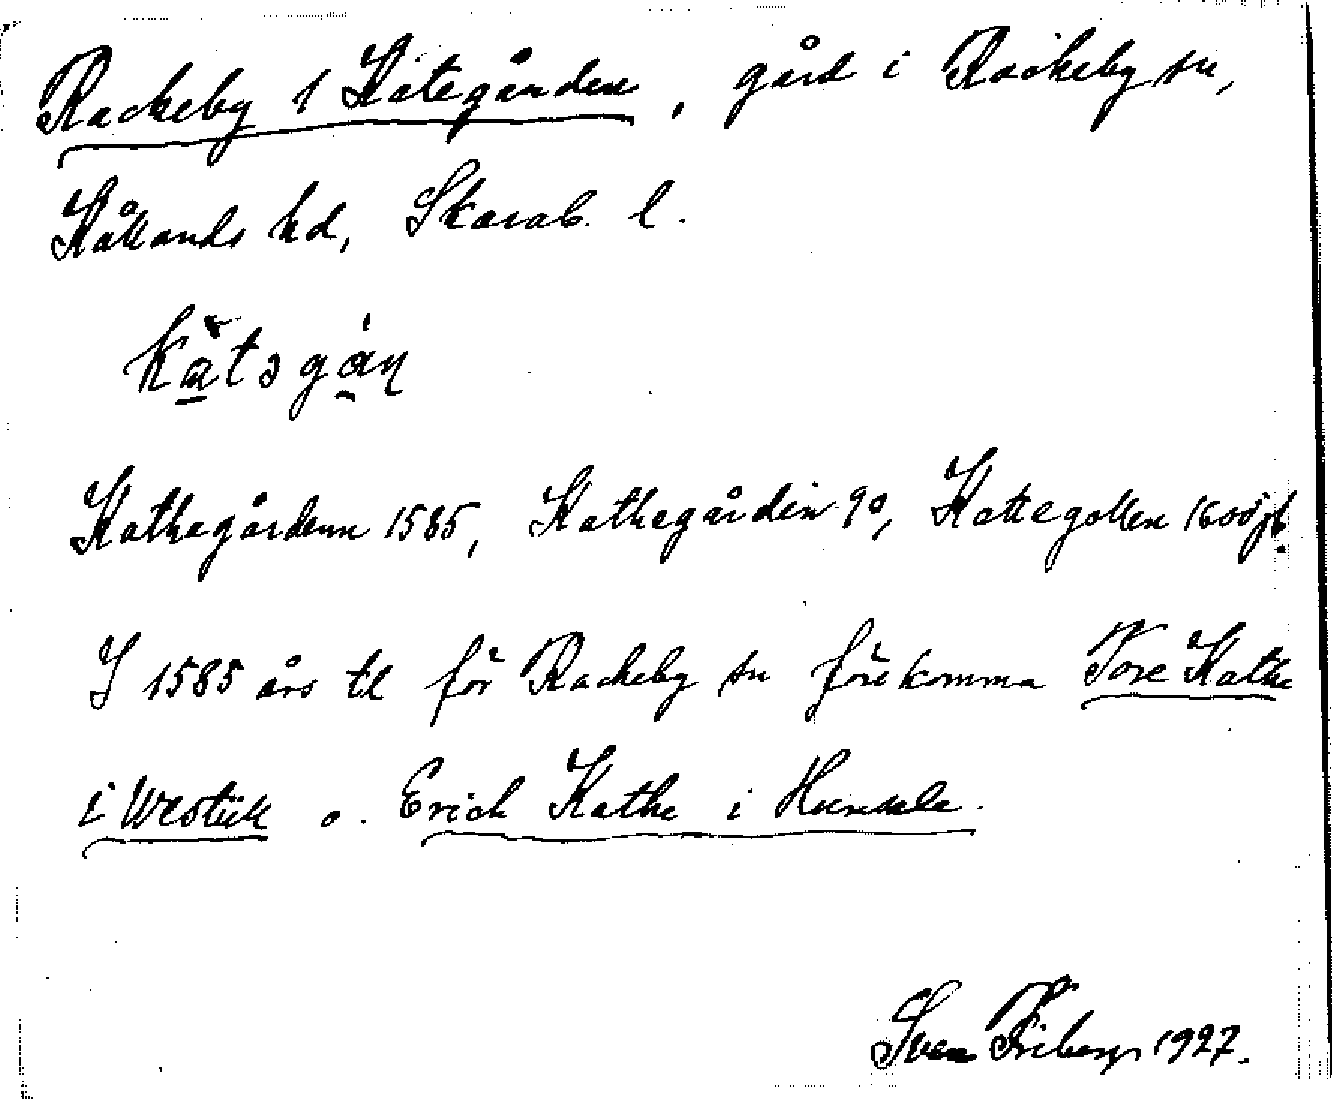 Rackeby 1 Kategården, gård i Rackeby sn,
Kållands hd, Skarab. l.
kătəgán
Kathegårdenn 1585, Kathegårdin 90, Kattegollen 1600 jb.
I 1585 års tl för Rackeby sn förekomma Tore Kathe
i Westũtt o. Erich Kathe i
Sven Friberg 1927.